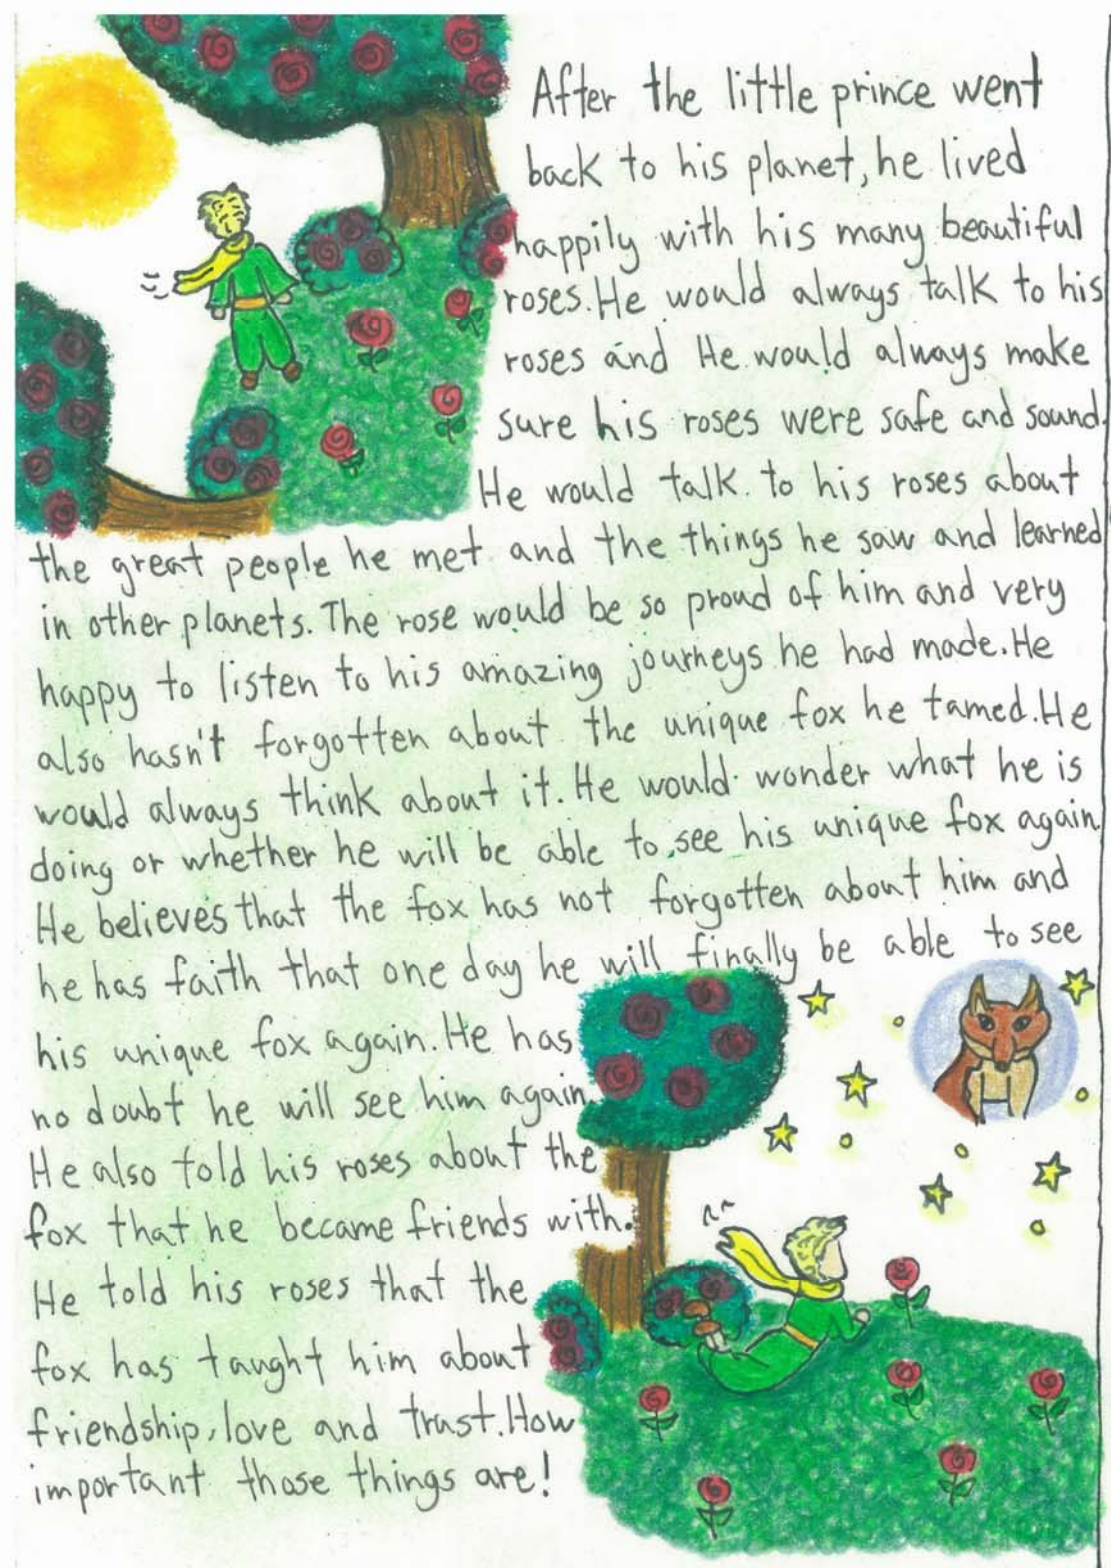 After the little prince went
back to his planet, he lived
happily with his many beautiful
roses. He would always talk to his
roses and He would always make
sure his roses were safe and sound.
He would talk to his roses about
the great people he met and the things he saw and learned
in other planets. The rose would be so proud of him and very
happy to listen to his amazing journeys he had made. He
also hasn't forgotten about the unique fox he tamed. He
would always think about it. He would wonder what he is
doing or whether he will be able to see his unique fox again
He believes that the fox has not forgotten about him and
he has faith that one day he will finally be able to see
his unique fox again. He has
no doubt he will see him again.
He also told his roses about the
fox that he became friends with.
He told his roses that the
fox has taught him about
friendship, love and trust. How
important those things are!